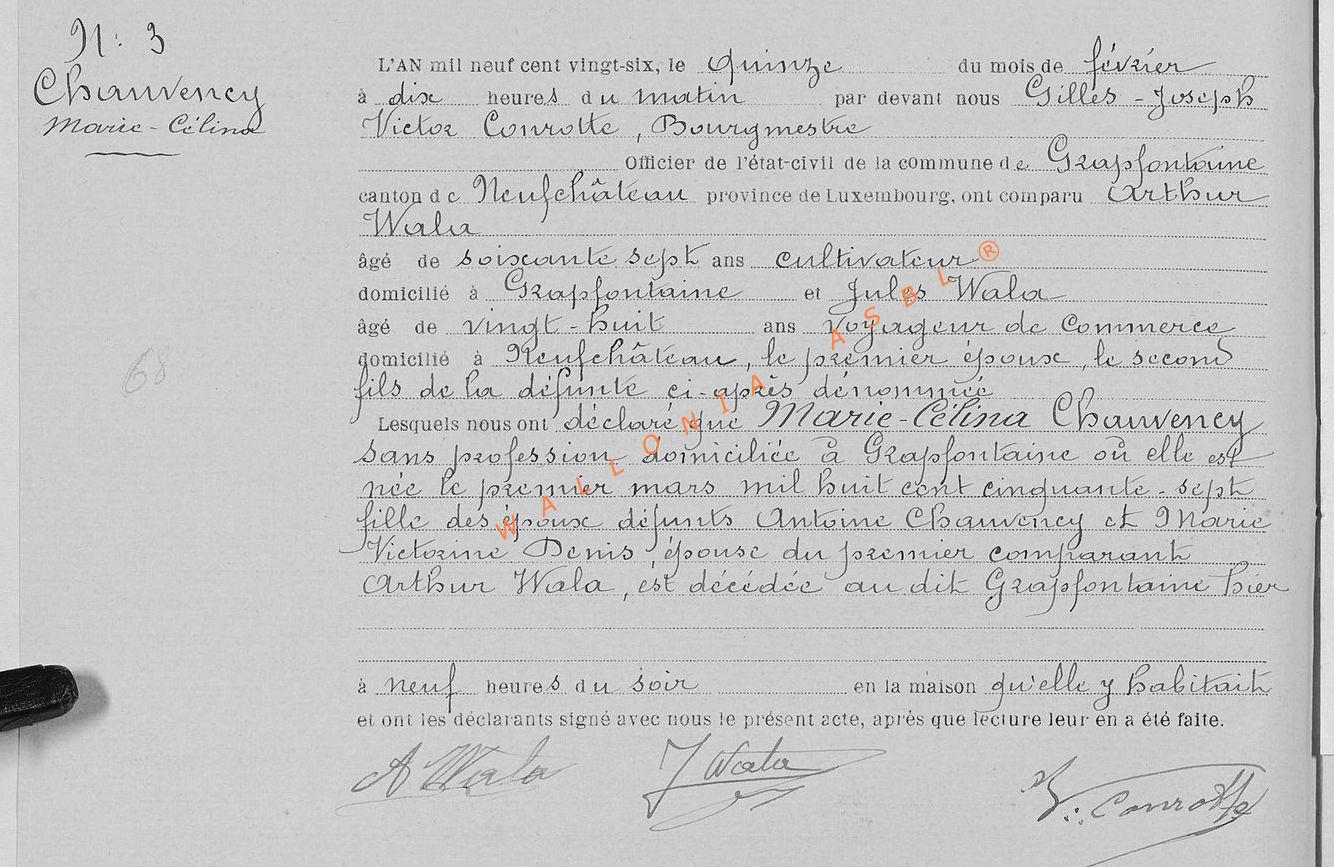 N: 3
Chauvency
Marie-Célina
L'AN mil neuf cent vingt-six, le quinze du mois de février
à dix heures du matin par devant nous Gilles-Joseph
Victor Conrotte, Bourgmestre
Officier de l'état-civil de la commune de Grapfontaine
canton de Neufchâteau province de Luxembourg, ont comparu Arthur
Wala
âgé de soixante sept ans cultivateur
domicilié à Grapfontaine et Jules Wala
âgé de vingt-huit ans voyageur de Commerce
domicilié à Neufchâteau, le premier époux, le second
fils de la défunte ci-après dénommée
Lesquels nous ont déclaré que Marie-Célina Chauvency
sans profession domiciliée à Grapfontaine où elle est
née le premier mars mil huit cent cinquante-sept
fille des époux défunts Antoine Chauvency et Marie
Victorine Denis, épouse du premier comparant
Arthur Wala, est décédée au dit Grapfontaine hier
à neuf heures du soir en la maison qu'elle y habitait
et ont les déclarants signé avec nous le présent acte, après que lecture leur en a été faite.
A Wala J Wala V. Conrotte
68
WALLONIA ASBL ®